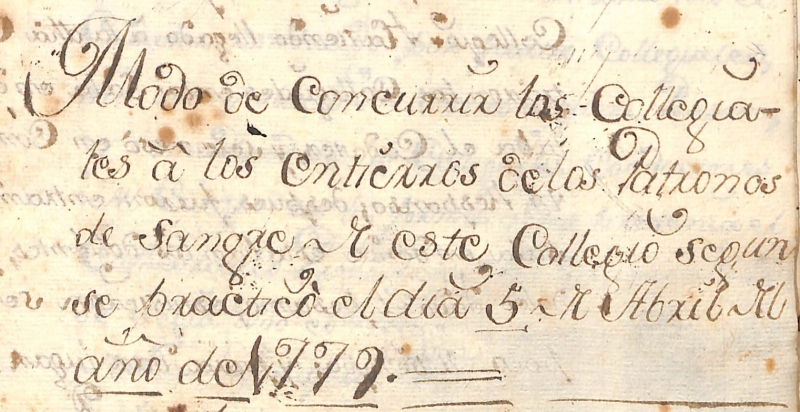 Modo de Concurrir los Collegia-
les à los entierros de los Patronos
de Sangre de este Collegio segun
se practicò el dia 5 de Abril del
año de 1779.